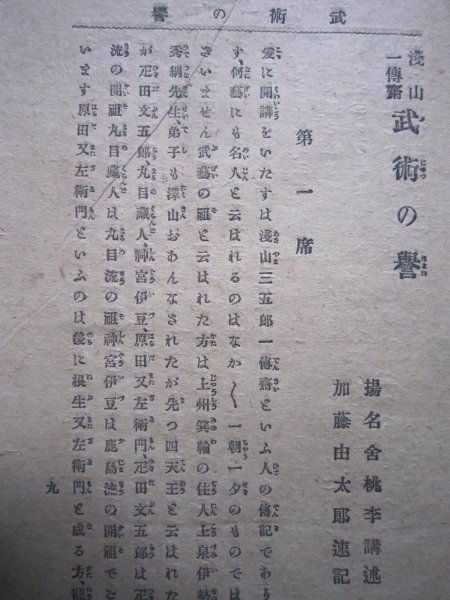 武術の譽
淺山一傳齋
武術の譽
揚名舍桃李講述
加藤由太郎速記
第一席
爰に開講をいたすは淺山三五郎一傳齋といふ人の傳記であり
す、何藝にも名人と云はれるのはなか〱一朝一夕のものでは
ざいません武藝の祖と云はれた方は上州箕輪の住人上泉伊勢
秀綱先生、弟子も澤山おあんなされたが先つ四天王と云はれた
が疋田文五郎、丸目藏人、神宮伊豆、原田又左衛門、疋田文五郎は疋
流の開祖丸目藏人は丸目流の祖神宮伊豆は鹿島流の開祖でご
います原田又左衛門といふのは後に根生又左衛門と成る方、
九